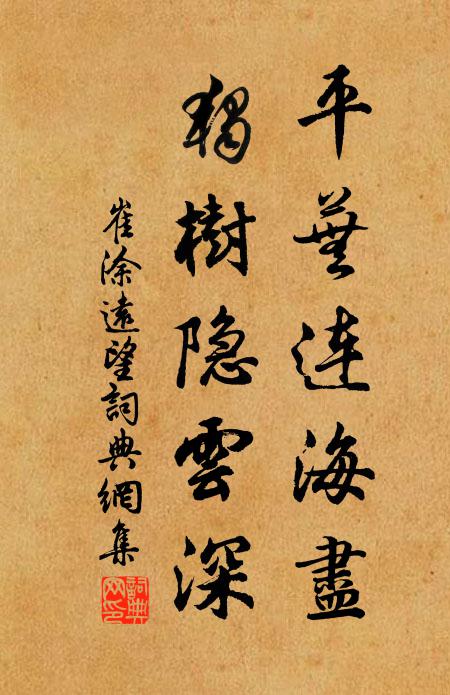 平蕪連海盡
獨樹隐雲深
崔涂遠望詞典網集
詞典
网印